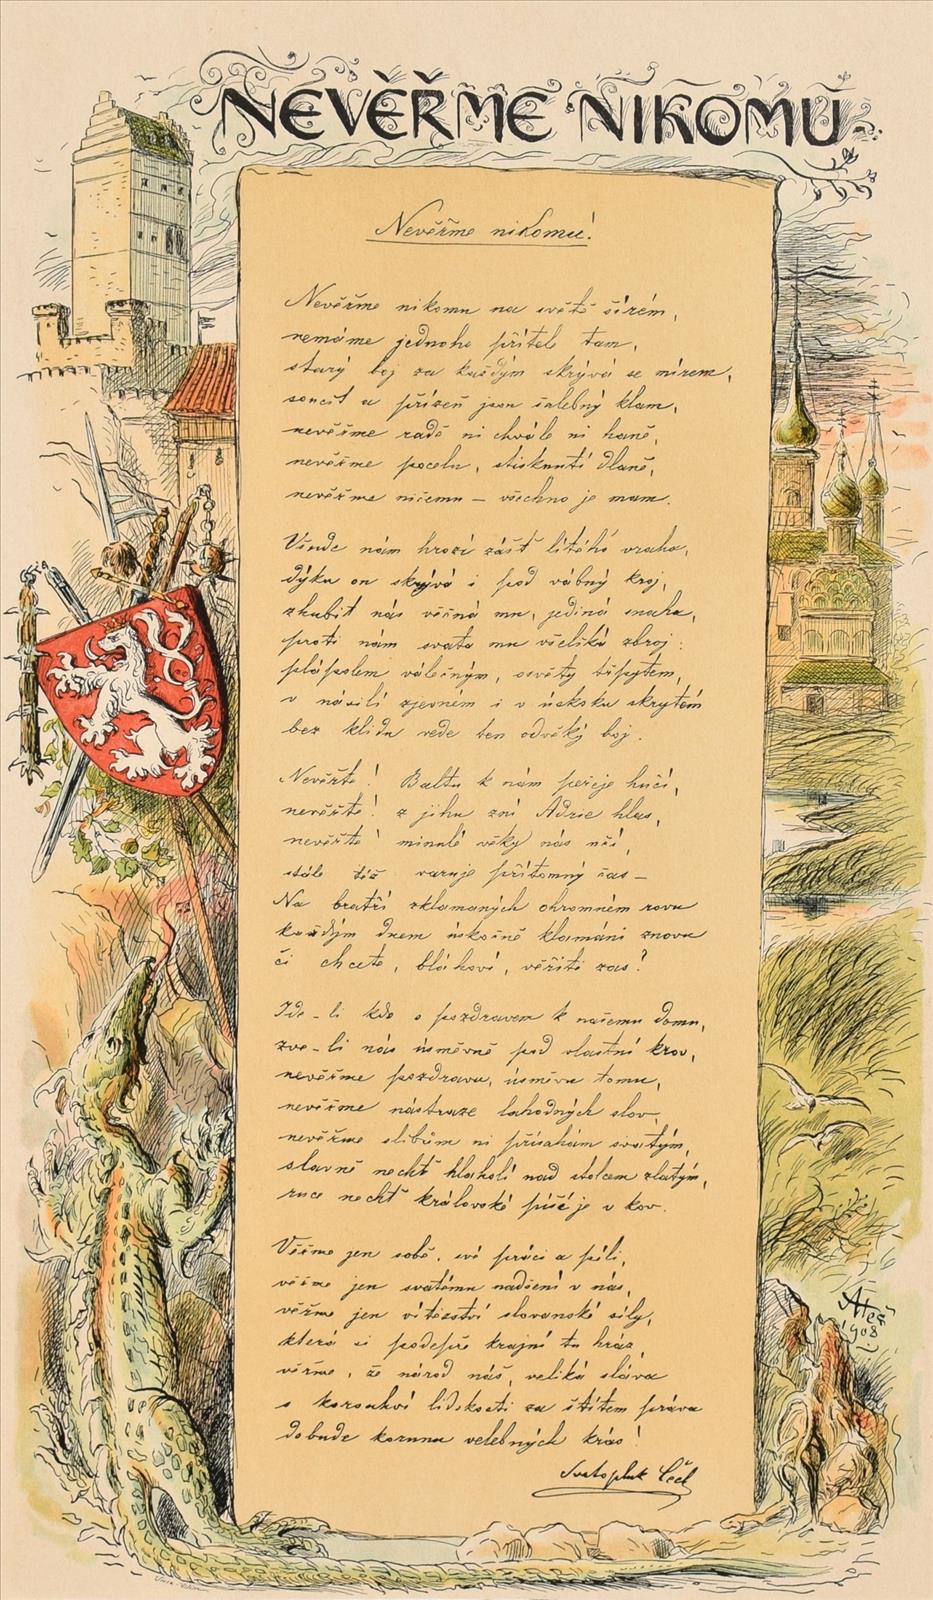 NEVĚŘME NIKOMU
Nevěřme nikomu!
Nevěřme nikomu na světě širém,
nemáme jednoho přítele tam,
starý boj za každým skrývá se mírem,
soucit a přízeň jsou šalebný klam,
nevěřme radě ni chvále ni haně,
nevěřme pocelu, stisknutí dlaně,
nevěřme ničemu – všechno je mam.
Všude nám hrozí zášť lítého vraha,
dýku on skrývá i pod vábný kroj,
zhubit nás věčná mu, jediná snaha,
proti nám svata mu všeliká zbroj:
plápolem válečným, osvěty třpytem,
v násilí zjevném i v úskoku skrytém
bez klidu vede ten odvěký boj.
Nevěřte! Baltu k nám peřeje hučí,
nevěřte! z jihu zní Adrie hlas,
nevěřte! minulé věky nás učí,
stále též varuje přítomný čas –
Na bratří zklamaných ohromném rovu
každým dnem úskočně klamáni znovu
či chcete, bláhoví, věřiti zas?
Jde-li kdo s pozdravem k našemu domu,
zve-li nás úsměvně pod vlastní krov,
nevěřme pozdravu, úsměvu tomu,
nevěřme nástraze lahodných slov,
nevěřme slibům ni přísahám svatým,
slavně nechť hlaholí nad stolcem zlatým,
ruce nechť královské píší je v kov.
Věřme jen sobě, své práci a píli,
věřme jen svatému nadšení v nás,
věřme jen vítězství slovanské síly,
která si podepře krajní tu hráz,
věřme, že národ náš, veliká sláva
s korouhví lidskosti za štítem práva
dobude korunu velebných krás!
Svatopluk Čech
1908